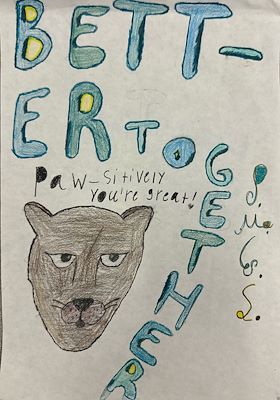 BETT-
ER TO
GETHER
Paw-sitively
you're great!
P.
M.
G.
S.